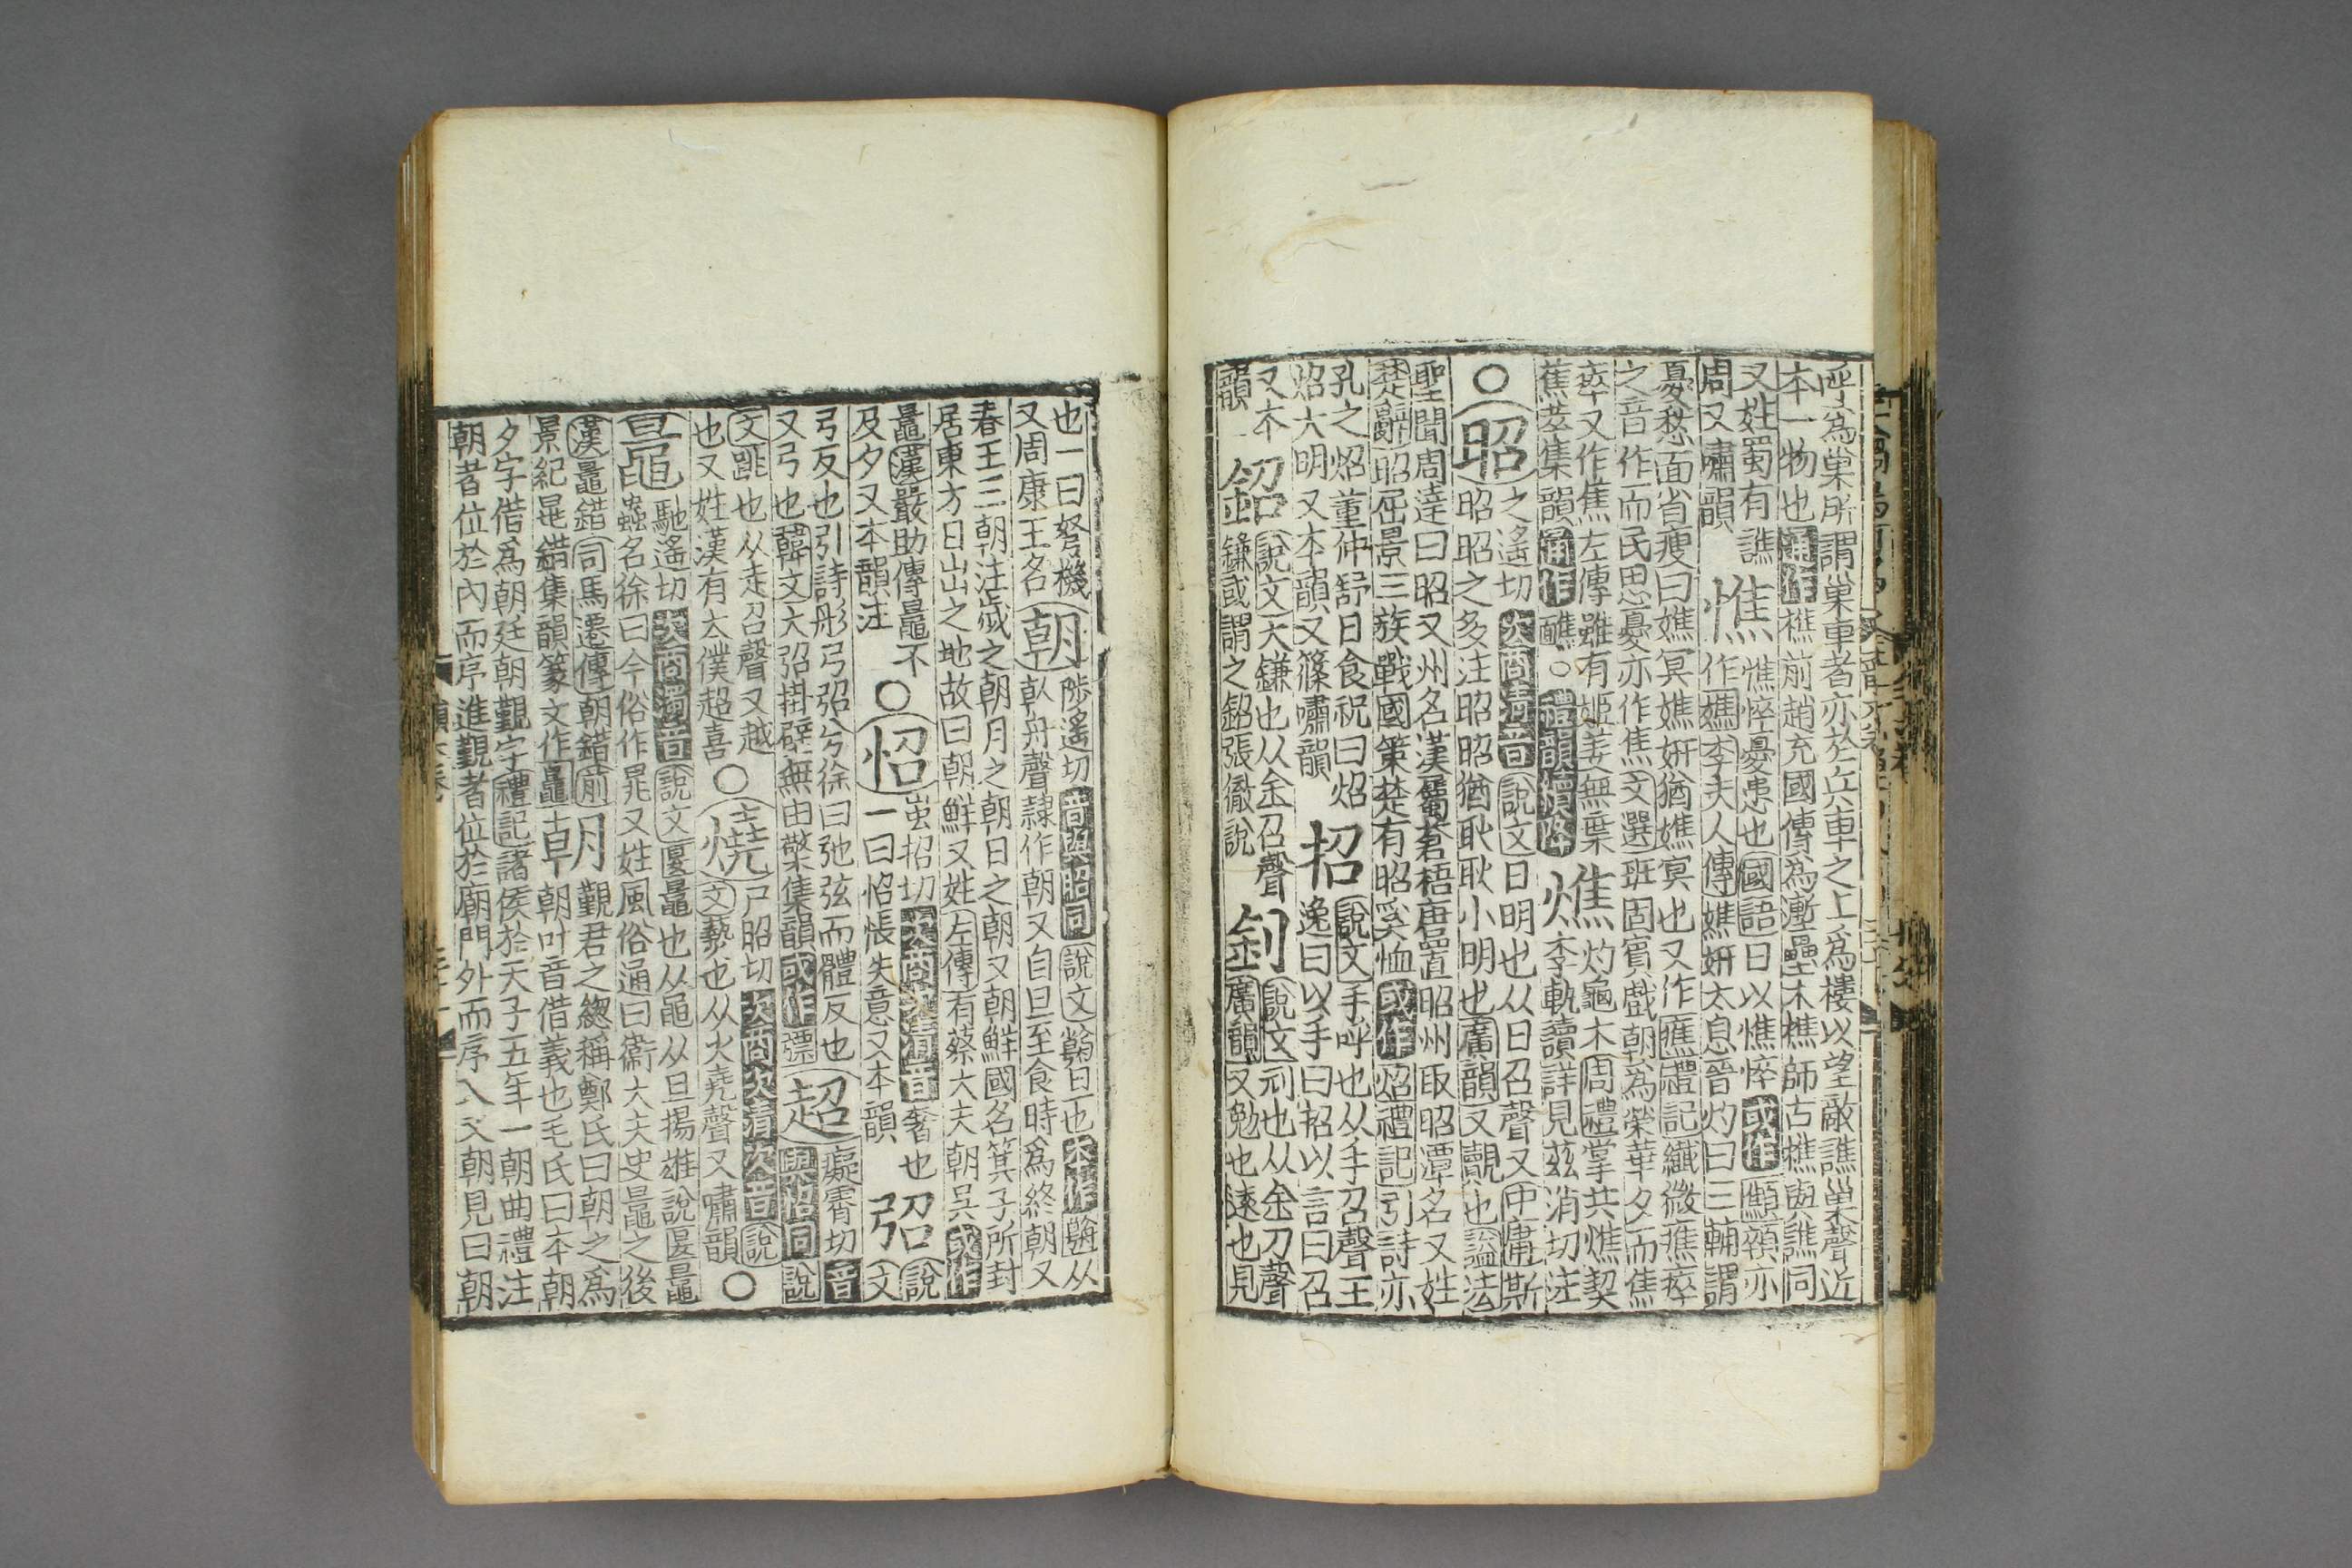 呼爲巢所謂巢車者亦於兵車之上爲樓以望敵譙巢聲近
本一物也通作樵前趙充國傳爲壍壘木樵師古樵與譙同
又姓蜀有譙
周又嘯韻
憔
憔悴憂患也國語曰以憔悴或作顦顇亦
作嫶李夫人傳嫶妍太息晉灼曰三輔謂
憂愁面省瘦曰嫶冥嫶妍猶嫶冥也又作癄禮記纖微癄瘁
之音作而民思憂亦作焦文選班固賓戲朝爲榮華夕而焦
瘁又作蕉左傳雖有姬姜無棄
蕉萃集韻通作醮○禮韻續降
燋
灼龜木周禮掌共燋契
李軌讀詳見兹消切注
○昭
之遙切次商清音說文日明也从日召聲又中庸斯
昭昭之多注昭昭猶耿耿小明也廣韻又覿也諡法
聖聞周達曰昭又州名漢屬蒼梧唐置昭州取昭潭名又姓
楚辭昭屈景三族戰國策楚有昭奚恤或作炤禮記引詩亦
孔之炤董仲舒日食祝曰炤
炤大明又本韻又篠嘯韻
招
說文手呼也从手召聲王
逸曰以手曰招以言曰召
又本
韻
鉊
說文大鎌也从金召聲
鎌或謂之鉊張徹說
釗
說文刓也从金刀聲
廣韻又勉也遠也見
也一曰弩機
又周康王名
朝
陟遙切音與昭同說文朝旦也本作
从
倝舟聲隸作朝又自旦至食時爲終朝又
春王三朝注歲之朝月之朝日之朝又朝鮮國名箕子所封
居東方日出之地故曰朝鮮又姓左傳有蔡大夫朝吳或作
鼂漢嚴助傳鼂不
及夕又本韻注
○怊
蚩招切次商次清音奢也
一曰怊悵失意又本韻
弨
說文
弓反也引詩彤弓弨兮徐曰弛弦而體反也
又弓也韓文大弨掛壁無由檠集韻或作弨
超
癡霄切音
與怊同說
文跳也从走召聲又越
也又姓漢有太僕超喜
○燒
尸昭切次商次清次音說
文爇也从火堯聲又嘯韻
○鼂
馳遙切次商濁音說文匽鼂也从黽从旦揚雄說匽鼂
蟲名徐曰今俗作晁又姓風俗通曰衞大夫史鼂之後
漢鼂錯司馬遷傳朝錯前
景紀晁錯集韻篆文作鼂
朝
覲君之緫稱鄭氏曰朝之爲
朝叶音借義也毛氏曰本朝
夕字借爲朝廷朝覲字禮記諸侯於天子五年一朝曲禮注
朝者位於內而序進覲者位於廟門外而序入又朝見曰朝